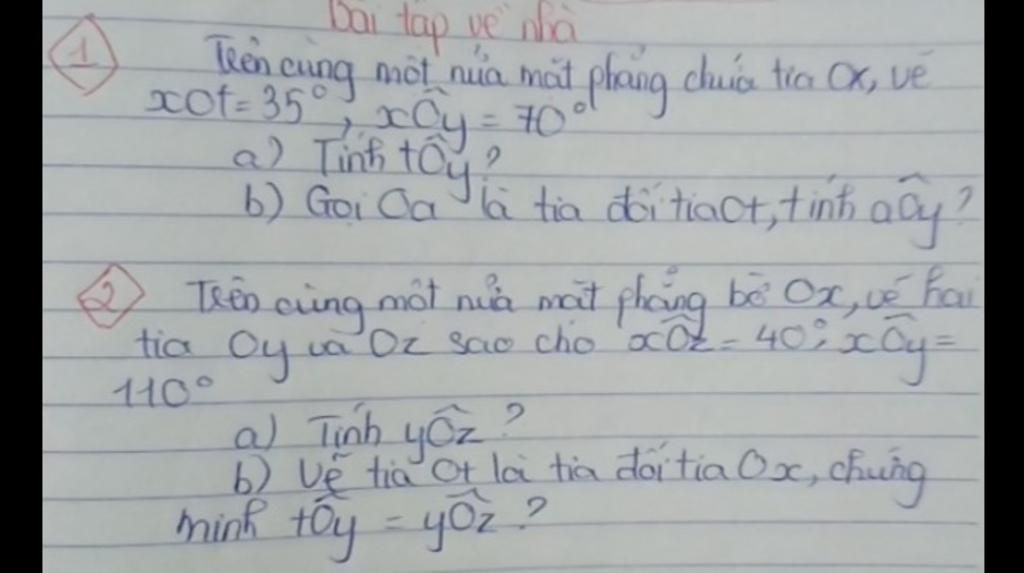 Bài tập về nhà
1 Trên cùng một nửa mặt phẳng chứa tia Ox, vẽ
xOt = 35°, xÔy = 70°
a) Tính tÔy?
b) Gọi Oa là tia đối tia Ot, tính aÔy?
2 Trên cùng một nửa mặt phẳng bờ Ox, vẽ hai
tia Oy và Oz sao cho xÔz = 40°; xÔy =
110°
a) Tính yÔz?
b) Vẽ tia Ot là tia đối tia Ox, chứng
minh tÔy = yÔz?